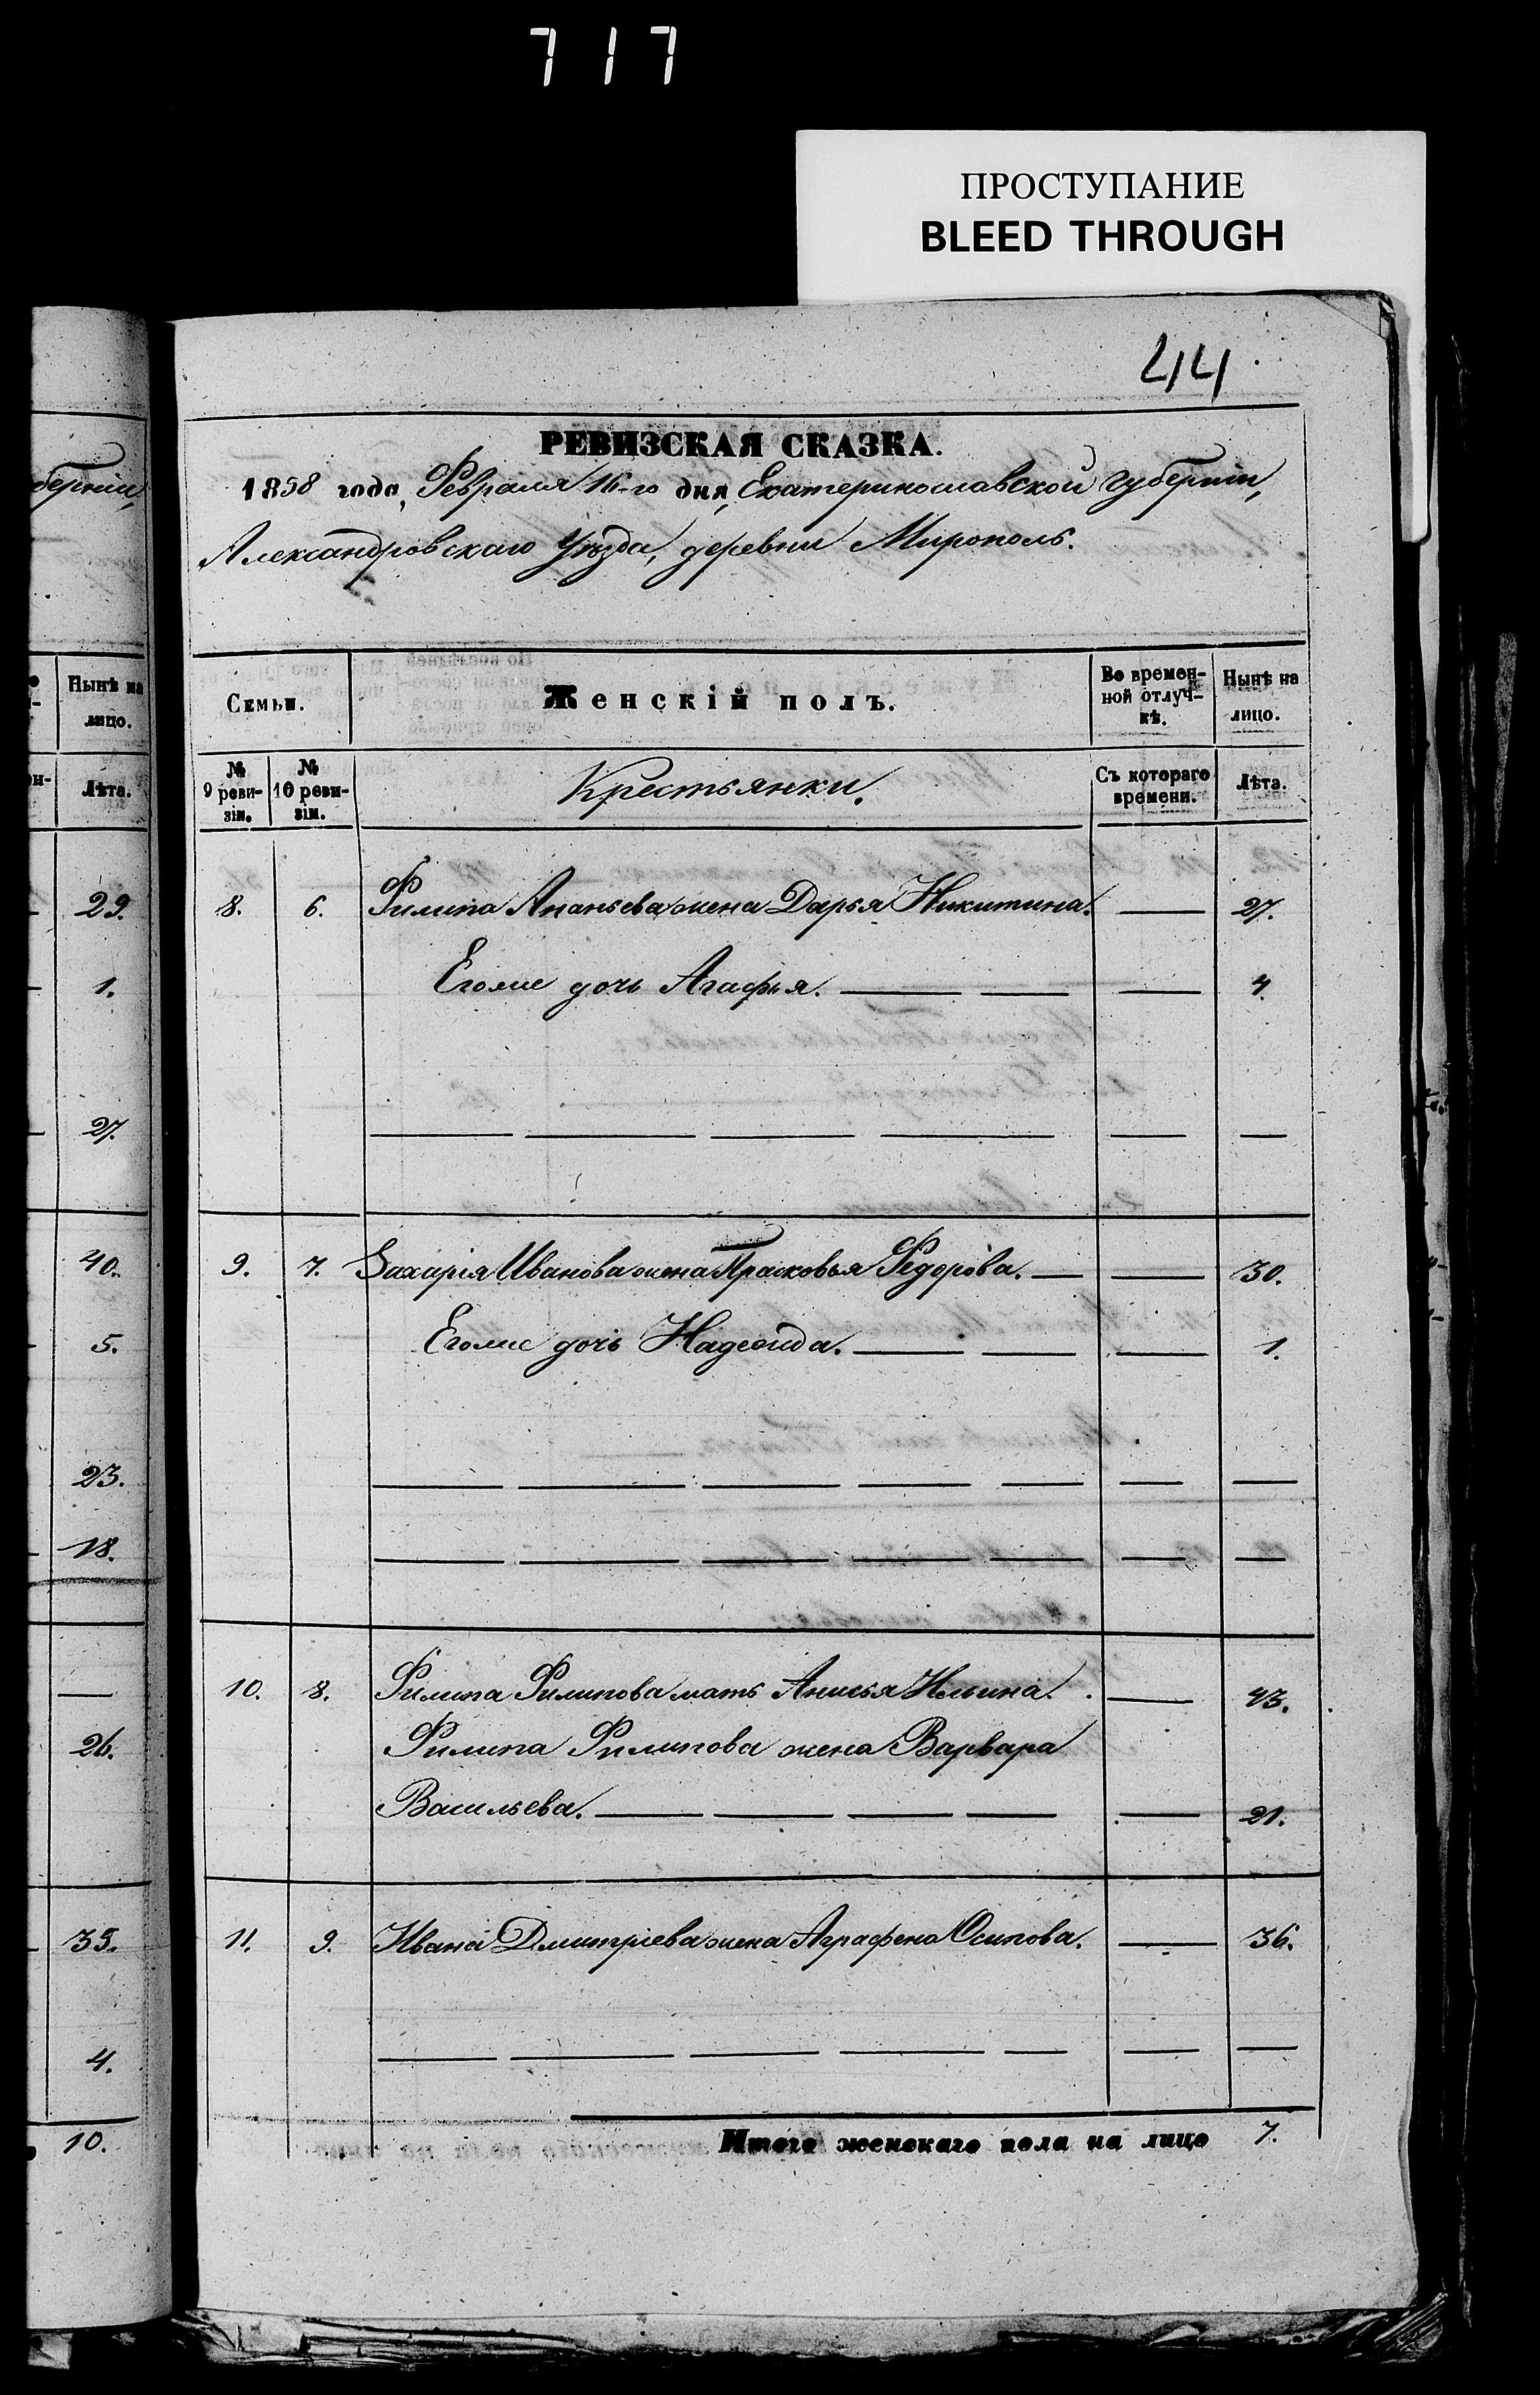 717
ПРОСТУПАНИЕ
BLEED THROUGH
44
РЕВИЗСКАЯ СКАЗКА.
1858 года, Февраля 16-го дня, Екатеринославской Губерніи,
Александровскаго Уѣзда, деревни Мирополь.
берніи,
Нынѣ на лицо.
Лѣта.
29.
1.
27.
40.
5.
23.
18.
26.
35.
4.
10.
Семьи. Женскій полъ. Во времен-ной отлуч-кѣ. Нынѣ на лицо.
№ 9 реви-зіи. № 10 реви-зіи. Крестьянки. Съ котораго времени. Лѣта.
8. 6. Филипа Ананьева жена Дарья Никитина. — 27.
Егоже дочь Агафья. — 4.
9. 7. Захарія Иванова жена Прасковья Федорова. — 30.
Егоже дочь Надежда. — 1.
10. 8. Филипа Филипова мать Анисья Ильина. — 43.
Филипа Филипова жена Варвара
Васильева. — 21.
11. 9. Ивана Дмитріева жена Аграфена Осипова. — 36.
Итого женскаго пола на лицо 7.